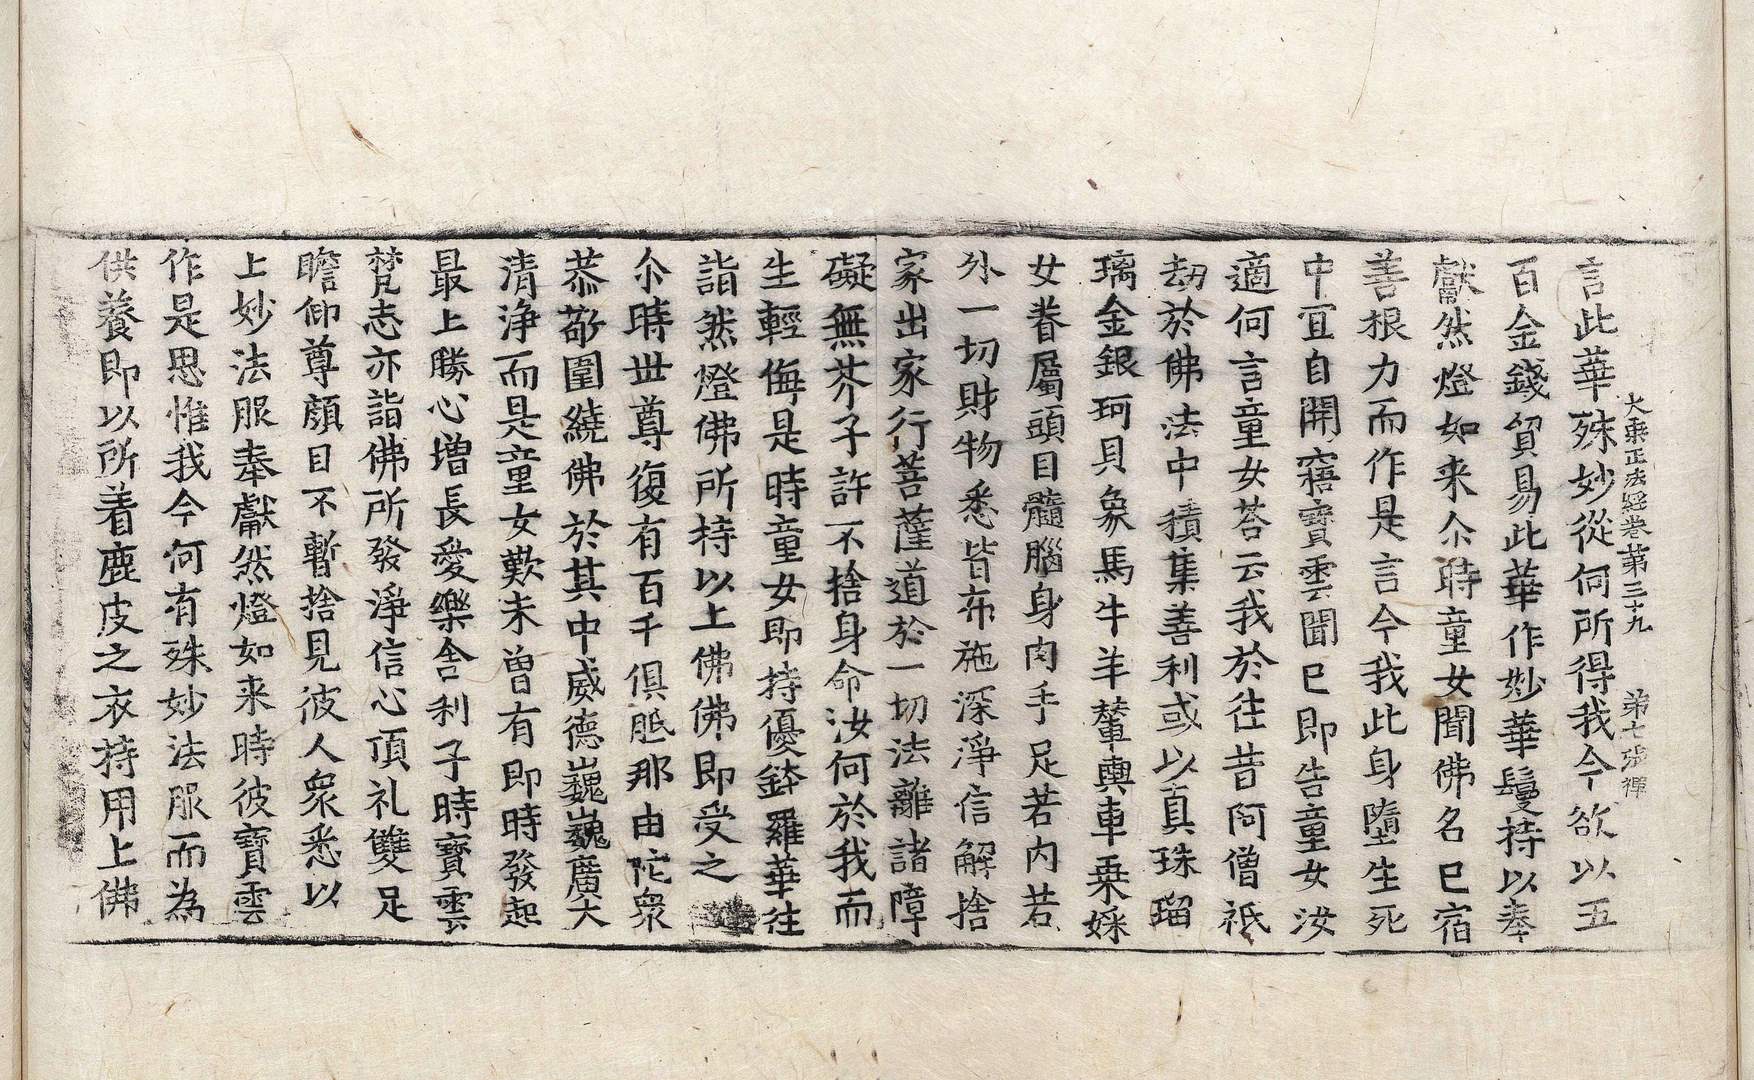 大乘正法經卷第三十九 第七張 禪
言此華殊妙從何所得我今欲以五
百金錢貿易此華作妙華鬘持以奉
獻然燈如来尒時童女聞佛名已宿
善根力而作是言今我此身墮生死
中宜自開寤寶雲聞已即告童女汝
適何言童女荅云我於往昔阿僧祇
劫於佛法中積集善利或以真珠瑠
璃金銀珂貝象馬牛羊輦輿車乗婇
女眷屬頭目髓腦身肉手足若内若
外一切財物悉皆布施深淨信解捨
家出家行菩薩道於一切法離諸障
礙無芥子許不捨身命汝何於我而
生輕侮是時童女即持優鉢羅華往
詣然燈佛所持以上佛佛即受之
尒時世尊復有百千俱胝那由陀衆
恭敬圍繞佛於其中威德巍巍廣大
清淨而是童女歎未曾有即時發起
最上勝心增長愛樂舍利子時寶雲
梵志亦詣佛所發淨信心頂礼雙足
瞻仰尊顔目不暫捨見彼人衆悉以
上妙法服奉獻然燈如来時彼寶雲
作是思惟我今何有殊妙法服而為
供養即以所着鹿皮之衣持用上佛